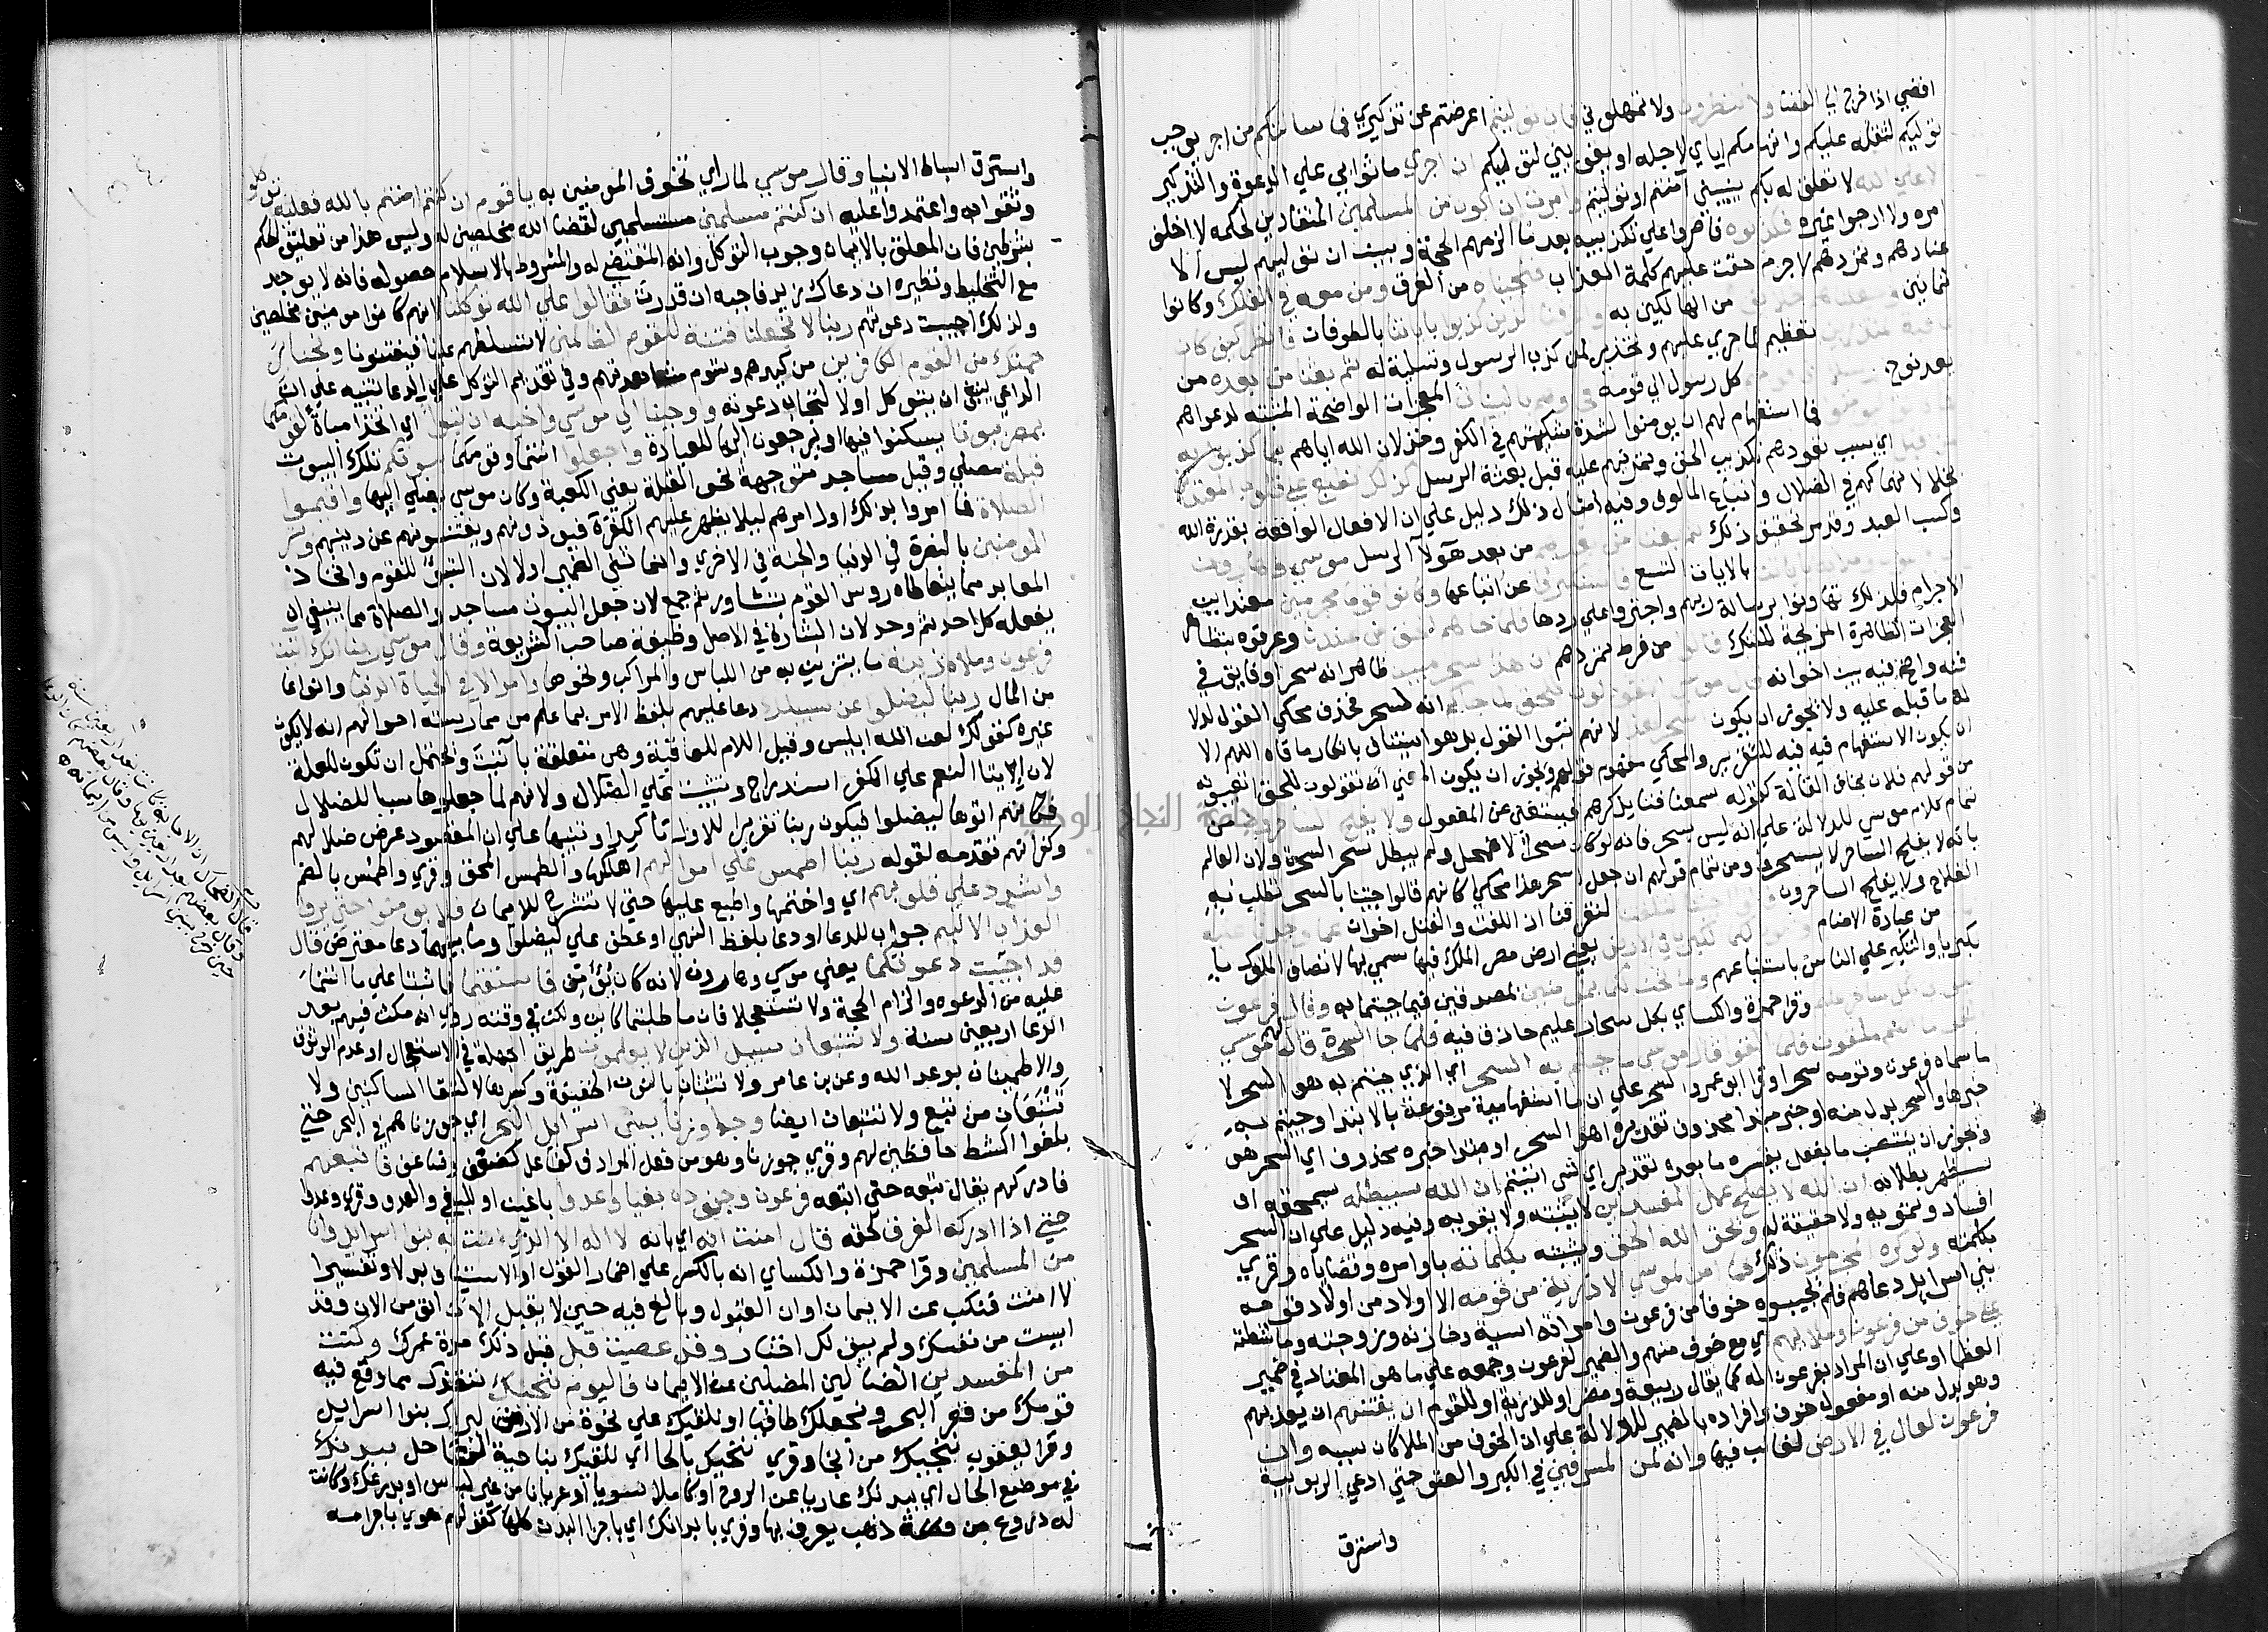 افضي اذا خرج الي الفضا ولا تنظرون ولا تمهلوني فان توليتم اعرضتم عن تذكيري فما سالتكم من اجر يوجب
توليكم لثقله عليكم واتهامكم اياي لاجله او يفوتني لتوليكم ان اجري ما ثوابي علي الدعوة والتذكير
الا علي الله لا تعلق له بكم يثيبني آمنتم او توليتم وامرت ان اكون من المسلمين المنقادين لحكمه لا اخالف
امره ولا ارجوا غيره فكذبوه فاصروا علي تكذيبه بعد ما الزمهم الحجة وبين ان توليهم ليس الا
عنادهم وتمردهم لا جرم حقت عليهم كلمة العذاب فنجيناه من الغرق ومن معه في الفلك وكانوا
ثمانين وجعلناهم خلايف من الهالكين به واغرقنا الذين كذبوا باياتنا بالطوفان فانظر كيف كان
عاقبة المنذرين تعظيم لما جري عليهم وتحذير لمن كذب الرسول وتسلية له ثم بعثنا من بعده من
بعد نوح رسلا الي قومهم كل رسول الي قومه فجاوهم بالبينات المعجزات الواضحة المثبتة لدعواهم
فما كانوا ليومنوا فما استقام لهم ان يومنوا لشدة شكيمتهم في الكفر وخذلان الله اياهم بما كذبوا به
من قبل اي بسبب تعودهم تكذيب الحق وتمرنهم عليه قبل بعثة الرسل كذلك نطبع علي قلوب المعتدين
بخذلانهم لانهماكهم في الضلال واتباع المالوف وفي امثال ذلك دليل علي ان الافعال الواقعة بقدرة الله
وكسب العبد وقد مر تحقيق ذلك ثم بعثنا من بعدهم من بعد هولآ الرسل موسي وهارون
الي فرعون وملائه باياتنا بالايات التسع فاستكبروا عن اتباعها وكانوا قوما مجرمين معتادين
الاجرام فلذلك تهاونوا برسالة ربهم واجترواعلي ردها فلما جاهم الحق من عندنا وعرفوه بتظاهر
المعجزات الظاهرة المزيحة للشك قالوا من فرط تمردهم ان هذا لسحر مبين ظاهر انه سحر او فايق في
فنه واضح فيه بين اخوانه قال موسي اتقولون للحق لما جاكم انه لسحر فحذف محكي القول لدلالة
له ما قبله عليه ولا يجوز ان يكون اسحر هذا لانهم بتوا القول بل هو استيناف بانكار ما قالوه اللهم الا
ان يكون الاستفهام فيه للتقرير والمحكي مفهوم قولهم ويجوز ان يكون المعني اتقولون للحق اتعيبونه
من قولهم فلان يخاف القالة كقوله سمعنا فتي يذكرهم فيستغني عن المفعول ولا يفلح الساحرون من
تمام كلام موسي للدلالة علي انه ليس بسحر فانه لو كان سحرا لاضمحل ولم يبطل سحر السحرة ولان العالم
بانه لا يفلح الساحر لا يسحر ومن تمام قولهم ان جعل اسحر هذا محكي كانهم قالوا جيتنا بالسحر تطلب به
الفلاح ولا يفلح الساحرون قالوا اجيتنا لتلفتنا لتصرفنا ان اللفت والفتل اخوان عما وجدنا عليه
اباءنا من عبادة الاصنام وتكون لكما الكبريا في الارض يعني ارض مصر الملك فيها سمي بها لاتصاف الملوك با
لكبريا والتكبر علي الناس باستتباعهم وما نحن لكما بمومنين لمصدقين فيما جيتما به وقال فرعون
ايتوني بكل ساحر عليم وقرا حمزة والكساي بكل سحار عليم حاذق فيه فلما جا السحرة قال لهم موسي
القوا ما انتم ملقون فلما القوا قال موسي ما جيتم به السحر اي الذي جيتم به هو السحر لا
ما سماه فرعون وقومه سحرا وقرا ابو عمرو السحر علي ان ما استفهامية مرفوعة بالابتدا وجيتم به
خبرها والسحر بدل منه او خبر مبتدا محذوف تقديره اهو السحر او مبتدا خبره محذوف اي السحر هو
ويجوز ان ينتصب ما بفعل يفسره ما بعده تقديره اي شي اتيتم ان الله سيبطله سيمحقه او
سيظهر بطلانه ان الله لا يصلح عمل المفسدين لا يثبته ولا يقويه وفيه دليل علي ان السحر
افساد وتمويه ولا حقيقة له ويحق الله الحق ويثبته بكلماته باوامره وقضاياه وقري
بكلمته ولو كره المجرمون ذلك فما امن لموسي الا ذرية من قومه الا اولاد من اولاد قومه
بني اسرايل دعاهم فلم يجيبوه خوفا من فرعون وامراته اسية وخازنه وزوجته وماشطته
علي خوف من فرعون وملايهم اي مع خوف منهم والضمير لفرعون وجمعه علي ما هو المعتاد في ضمير
العظما او علي ان المراد بفرعون اله كما يقال ربيعة ومضر او للذرية او للقوم ان يفتنهم ان يعذبهم
وهو بدل منه او مفعول خوف وافراده بالضمير للدلالة علي ان الخوف من الملا كان بسببه وان
فرعون لعال في الارض لغالب فيها وانه لمن المسرفين في الكبر والعتو حتي ادعي الربوبية
واسترق
واسترق اسباط الانبيا وقال موسي لما راي تخوف المومنين به يا قوم ان كنتم امنتم بالله فعليه توكلوا
وثقوا به واعتمدوا عليه ان كنتم مسلمين مستسلمين لقضا الله مخلصين له وليس هذا من تعليق الحكم
بشرطين فان المعلق بالايمان وجوب التوكل وانه المقتضي له والمشروط بالاسلام حصوله فانه لا يوجد
مع التخليط ونظيره ان دعاك زيد فاجبه ان قدرت فقالوا علي الله توكلنا لانهم كانوا مومنين مخلصين
ولذلك اجيبت دعوتهم ربنا لا تجعلنا فتنة للقوم الظالمين لا تسلطهم علينا فيفتنونا ونجنا بر
حمتك من القوم الكافرين من كيدهم وشوم مشاهدتهم وفي تقديم التوكل علي الدعا تنبيه علي ان
الداعي ينبغي ان يتوكل اولا لتجاب دعوته واوحينا الي موسي واخيه ان تبوآ اي اتخذا مباة لقومكما
بمصر بيوتا يسكنوا فيها او يرجعون اليها للعبادة واجعلوا انتما وقومكما بيوتكم تلك البيوت
قبلة مصلي وقيل مساجد متوجهة نحو القبلة يعني الكعبة وكان موسي يصلي اليها واقيموا
الصلاة فيها امروا بذلك اول امرهم ليلا يظهر عليهم الكفرة فيوذونهم ويفتنونهم عن دينهم وبشر
المومنين بالنصرة في الدنيا والجنة في الاخري وانما ثني الضمير اولا لان التبوء للقوم واتخاذ
المعابد مما يتعاطاه روس القوم بتشاور ثم جمع لان جعل البيوت مساجد والصلاة مما ينبغي ان
يفعله كل احد ثم وحد لان البشارة في الاصل وظيفة صاحب الشريعة وقال موسي ربنا انك اتيت
فرعون وملاه زينة ما يتزين به من اللباس والمراكب ونحوها وامولا في الحياة الدنيا وانواعا
من المال ربنا ليضلوا عن سبيلك دعا عليهم بلفظ الامر بما علم من ممارسة احوالهم انه لا يكون
غيره كقولك لعن الله ابليس وقيل اللام للعاقبة وهي متعلقة بآتيت ويحتمل ان تكون للعلة
لان ايتا النعم علي الكفر استدراج وتثبيت علي الضلال ولانهم لما جعلوها سببا للضلال
فكانهم اتوها ليضلوا فيكون ربنا تقريرا للاول تاكيدا وتنبيها علي ان المقصود عرض ضلالهم
وكفرانهم تقدمه لقوله ربنا اطمس علي اموالهم اهلكها والطمس المحق وقري واطمس بالضم
واشدد علي قلوبهم اي واختمها واطبع عليها حتي لا تنشرح للايمان فلا يومنوا حتي يروا
العذاب الاليم جواب للدعا او دعا بلفظ النهي او عطف علي ليضلوا وما بينهما دعا معترض قال
قد اجيبت دعوتكما يعني موسي وهارون لانه كان يؤمن فاستقيما فاثبتا علي ما انتما
عليه من الدعوه والزام الحجة ولا تستعجلا فان ما طلبتما كاين ولكن في وقته روي انه مكث فيهم بعد
الدعا اربعين سنة ولا تتبعان سبيل الذين لا يعلمون طريق الجهلة في الاستعجال او عدم الوثوق
والاطمينان بوعد الله وعن بن عامر ولا تتبعان بالنون الخفيفة وكسرها لالتقا الساكنين ولا
تتبعان من تبع ولا تتبعان ايضا وجاوزنا ببني اسرايل البحر اي جوزناهم في البحر حتي
بلغوا الشط حافظين لهم وقري جوزنا وهو من فعل المرادف لفاعل كضعف وضاعف فاتبعهم
فادركهم يقال تبعه حتي اتبعه فرعون وجنوده بغيا وعدوا باغين او للبغي والعدو وقري وعدوا
حتي اذا ادركه الغرق لحقه قال امنت انه اي بانه لا اله الا الذي امنت به بنوا اسرايل وانا
من المسلمين وقرا حمزة والكساي انه بالكسر علي اضمار القول او الاستيناف بدلا وتفسيرا
لامنت فنكب عن الايمان اوان القبول وبالغ فيه حين لا يقبل الان اتومن الان وقد
ايست من نفسك ولم يبق لك اختيار وقد عصيت قبل قبل ذلك مدة عمرك وكنت
من المفسدين الضالين المضلين عن الايمان فاليوم ننجيك ننقذك مما وقع فيه
قومك من قعر البحر ونجعلك طافيا او نلقيك علي نجوة من الارض ليراك بنوا اسرايل
وقرا يعقوب ننجيك من انجا وقري ننحيك بالحا اي نلقيك بناحية الساحل ببدنك
في موضع الحال اي ببدنك عاريا عن الروح او كاملا سويا او عريانا من غير لباس او بدرعك وكانت
له دروع من ذهب يعرف بها وقري بابدانك اي باجزا البدن كلها كقولهم هوي باجرامه